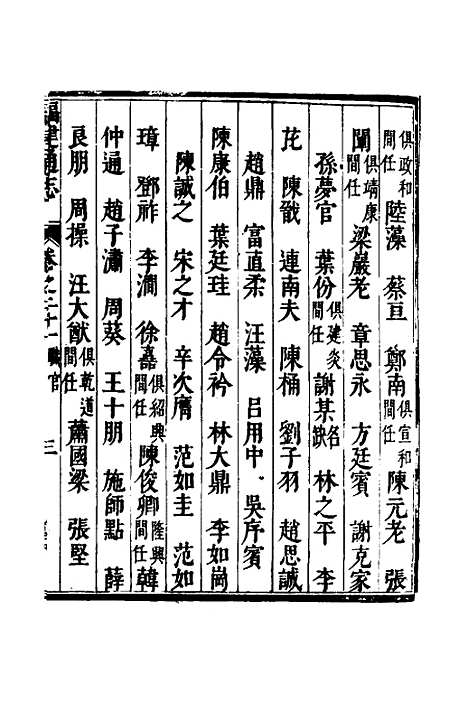 俱政和間任陸藻　蔡亘　鄭南俱宣和間任陳元老　張
閣俱靖康間任梁嚴老　章思永　方廷賓　謝克家
孫夢官　葉份俱建炎間任謝某名缺　林之平　李
芘　陳戩　連南夫　陳桷　劉子羽　趙思誠
趙鼎　富直柔　汪藻　呂用中　吳序賓
陳康伯　葉廷珪　趙令衿　林大鼎　李如岡
陳誠之　宋之才　辛次膺　范如圭　范如
璋　鄧祚　李澗　徐嘉俱紹興間任陳俊卿隆興間任韓
仲通　趙子潚　周葵　王十朋　施師點　薛
良朋　周操　汪大猷俱乾道間任蕭國梁　張堅
福建通志　卷之二十一　職官　三